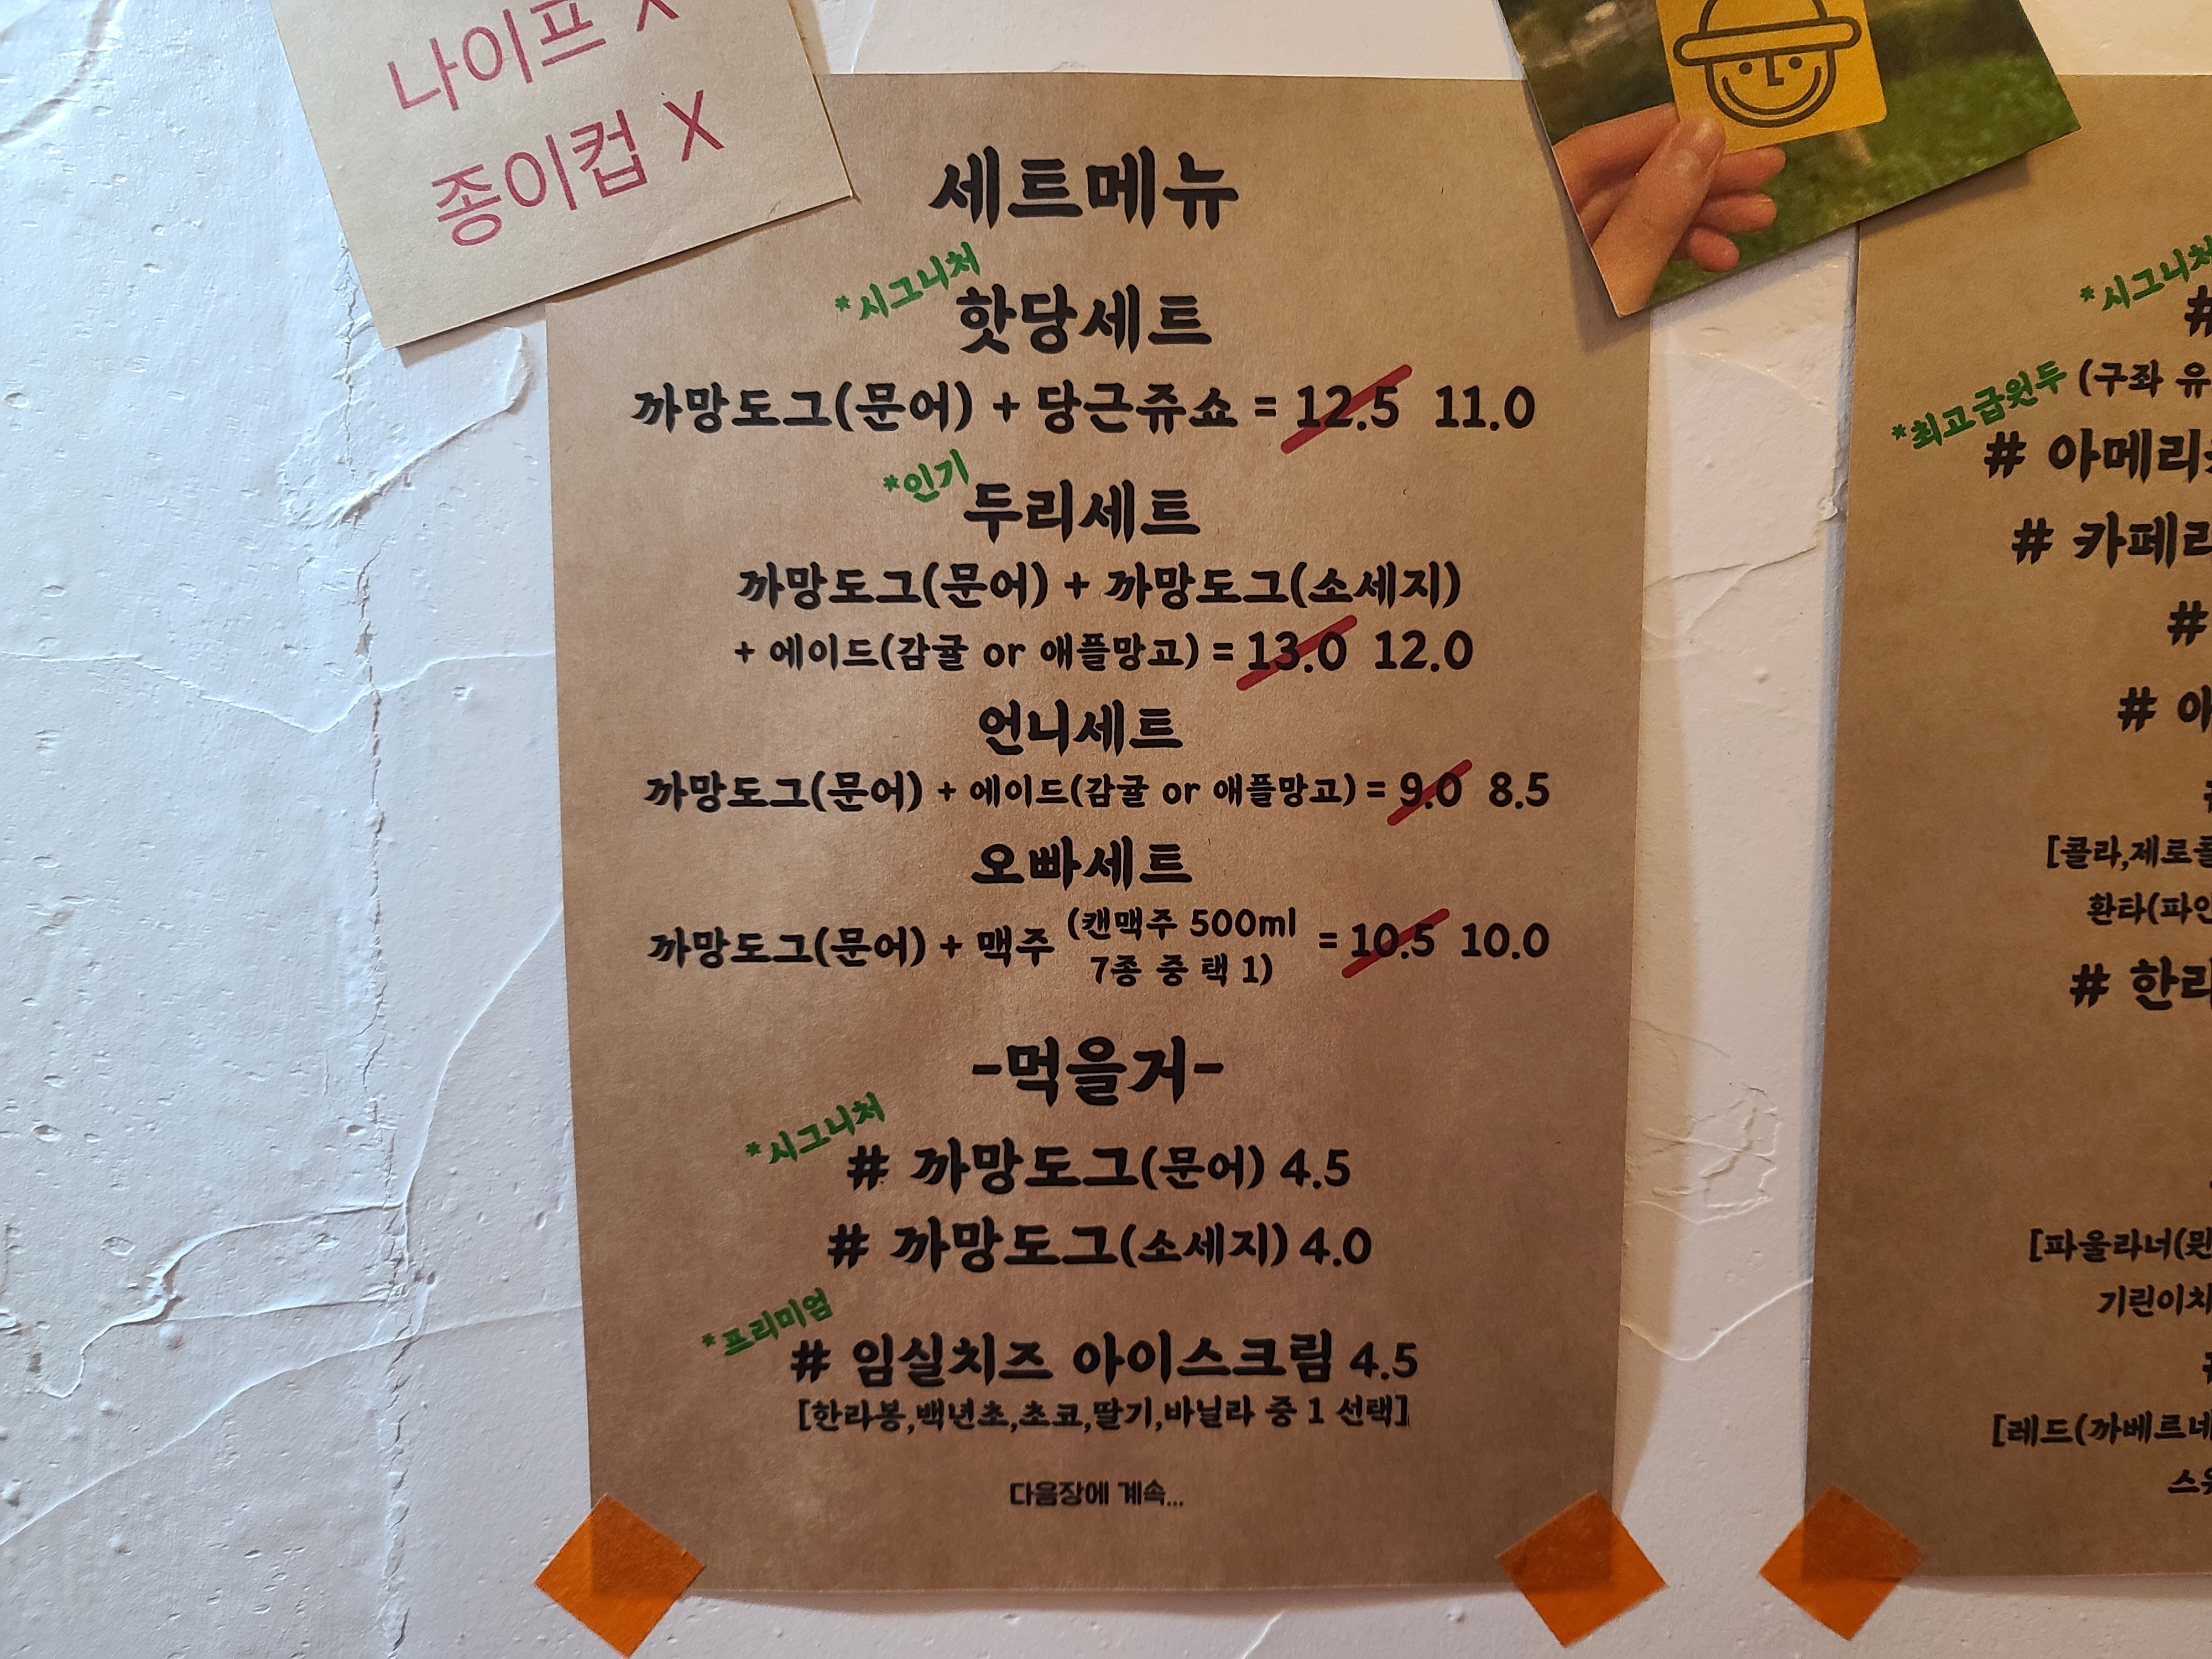 나이프 X
종이컵 X
세트메뉴
*시그니처
핫당세트
까망도그(문어) + 당근쥬쇼 = 12.5 11.0
*인기
두리세트
까망도그(문어) + 까망도그(소세지)
+ 에이드(감귤 or 애플망고) = 13.0 12.0
언니세트
까망도그(문어) + 에이드(감귤 or 애플망고) = 9.0 8.5
오빠세트
까망도그(문어) + 맥주 (캔맥주 500ml 7종 중 택 1) = 10.5 10.0
-먹을거-
*시그니처
# 까망도그(문어) 4.5
# 까망도그(소세지) 4.0
*프리미엄
# 임실치즈 아이스크림 4.5
[한라봉,백년초,초코,딸기,바닐라 중 1 선택]
다음장에 계속...
*시그니처
#
*최고급원두 (구좌 유
# 아메리
# 카페
#
# 아
[콜라,제로콜
환타(파인
# 한라
[파울라너(뮌
기린이치
[레드(까베르네